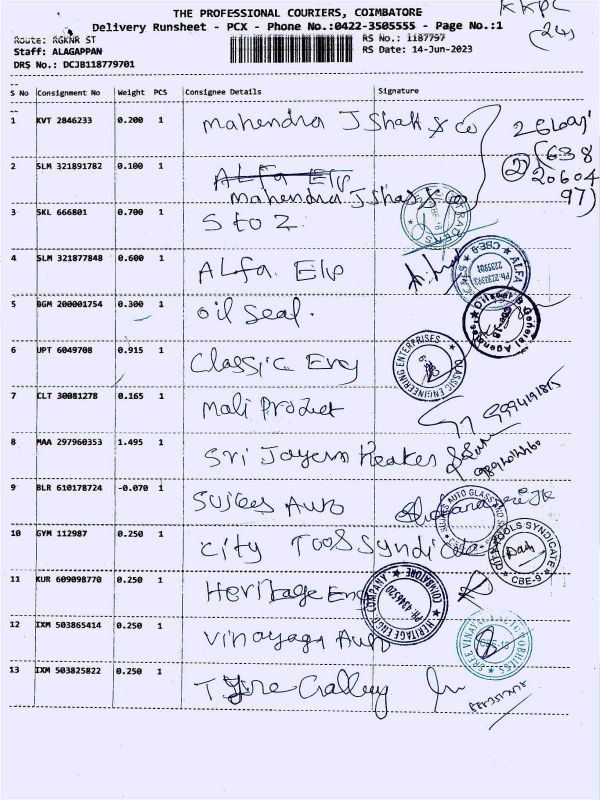 THE PROFESSIONAL COURIERS, COIMBATORE
KKPC
Delivery Runsheet - PCX - Phone No.:0422-3505555 - Page No.:1
(24)
Route: RGKNR ST
RS No.: 1187797
Staff: ALAGAPPAN
RS Date: 14-Jun-2023
DRS No.: DCJB118779701
S No Consignment No Weight PCS Consignee Details Signature
1 KVT 2846233 0.200 1 Mahendra J Shah & Co
2 SLM 321891782 0.100 1 Alfa Elp
Mahendra J Shah & Co
(638
20604
97)
3 SKL 666801 0.700 1 S to Z
4 SLM 321877848 0.600 1 ALfa Elp
ALFA
CBE-9
5 BGM 200001754 0.300 1 oil Seal.
General Agencies
6 UPT 6049708 0.915 1 Classic Eng
CLASSIC ENGINEERING ENTERPRISES
7 CLT 30081278 0.165 1 Mali Product
8 MAA 297960353 1.495 1 Sri Jayem
9 BLR 610178724 -0.070 1 Auto
AUTO GLASS AND
10 GYM 112987 0.250 1 City Tools Syndicate
CITY TOOLS SYNDICATE
CBE-9
11 KUR 609098770 0.250 1 Heritage Eng
HERITAGE ENGG COMPANY
COIMBATORE
12 IXM 503865414 0.250 1 Vinayaga Auto
SREE VINAYAGA AUTO MOBILES
13 IXM 503825822 0.250 1 Tyre Galley